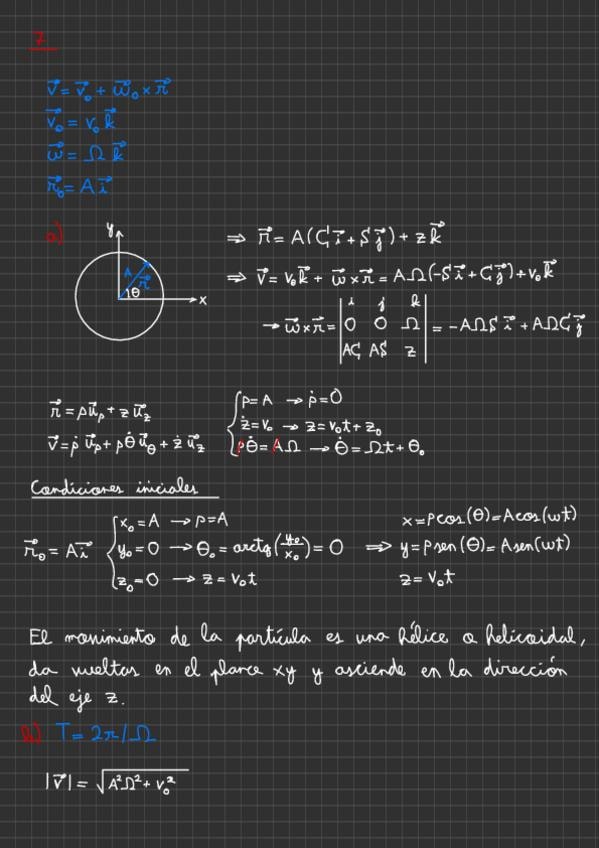 7
v⃗ = v⃗₀ + ω⃗₀ × r⃗
v⃗₀ = v₀ k⃗
ω⃗ = Ω k⃗
r⃗₀ = A i⃗
a)
y
A
r⃗
θ
x
⇒ r⃗ = A(C i⃗ + S j⃗) + z k⃗
⇒ v⃗ = v₀ k⃗ + ω⃗ × r⃗ = AΩ(-S i⃗ + C j⃗) + v₀ k⃗
→ ω⃗ × r⃗ = | i j k | 
| 0 0 Ω | = -AΩS i⃗ + AΩC j⃗
| AC AS z |
r⃗ = ρ u⃗ρ + z u⃗z
v⃗ = ρ̇ u⃗ρ + ρ θ̇ u⃗θ + ż u⃗z
{ ρ = A → ρ̇ = 0
ż = v₀ → z = v₀t + z₀
ρ θ̇ = AΩ → θ̇ = Ωt + θ₀
Condiciones iniciales
r⃗₀ = A i⃗
{ x₀ = A → ρ = A
y₀ = 0 → θ₀ = arctg(y₀/x₀) = 0 ⇒
z₀ = 0 → z = v₀t
x = ρ cos(θ) = A cos(ωt)
y = ρ sen(θ) = A sen(ωt)
z = v₀t
El movimiento de la partícula es una hélice o helicoidal,
da vueltas en el plano xy y asciende en la dirección
del eje z.
b) T = 2π/Ω
|v⃗| = √(A²Ω² + v₀²)